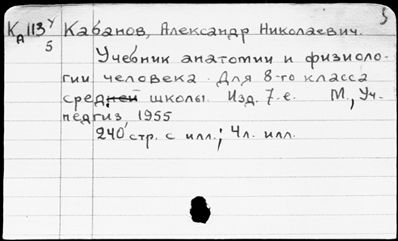 КА 113У Кабанов, Александр Николаевич.
5
Учебник анатомии и физиоло-
гии человека. Для 8-го класса
средней школы. Изд. 7-е. М., Уч-
педгиз, 1955
240 стр. с илл.; 4л. илл.